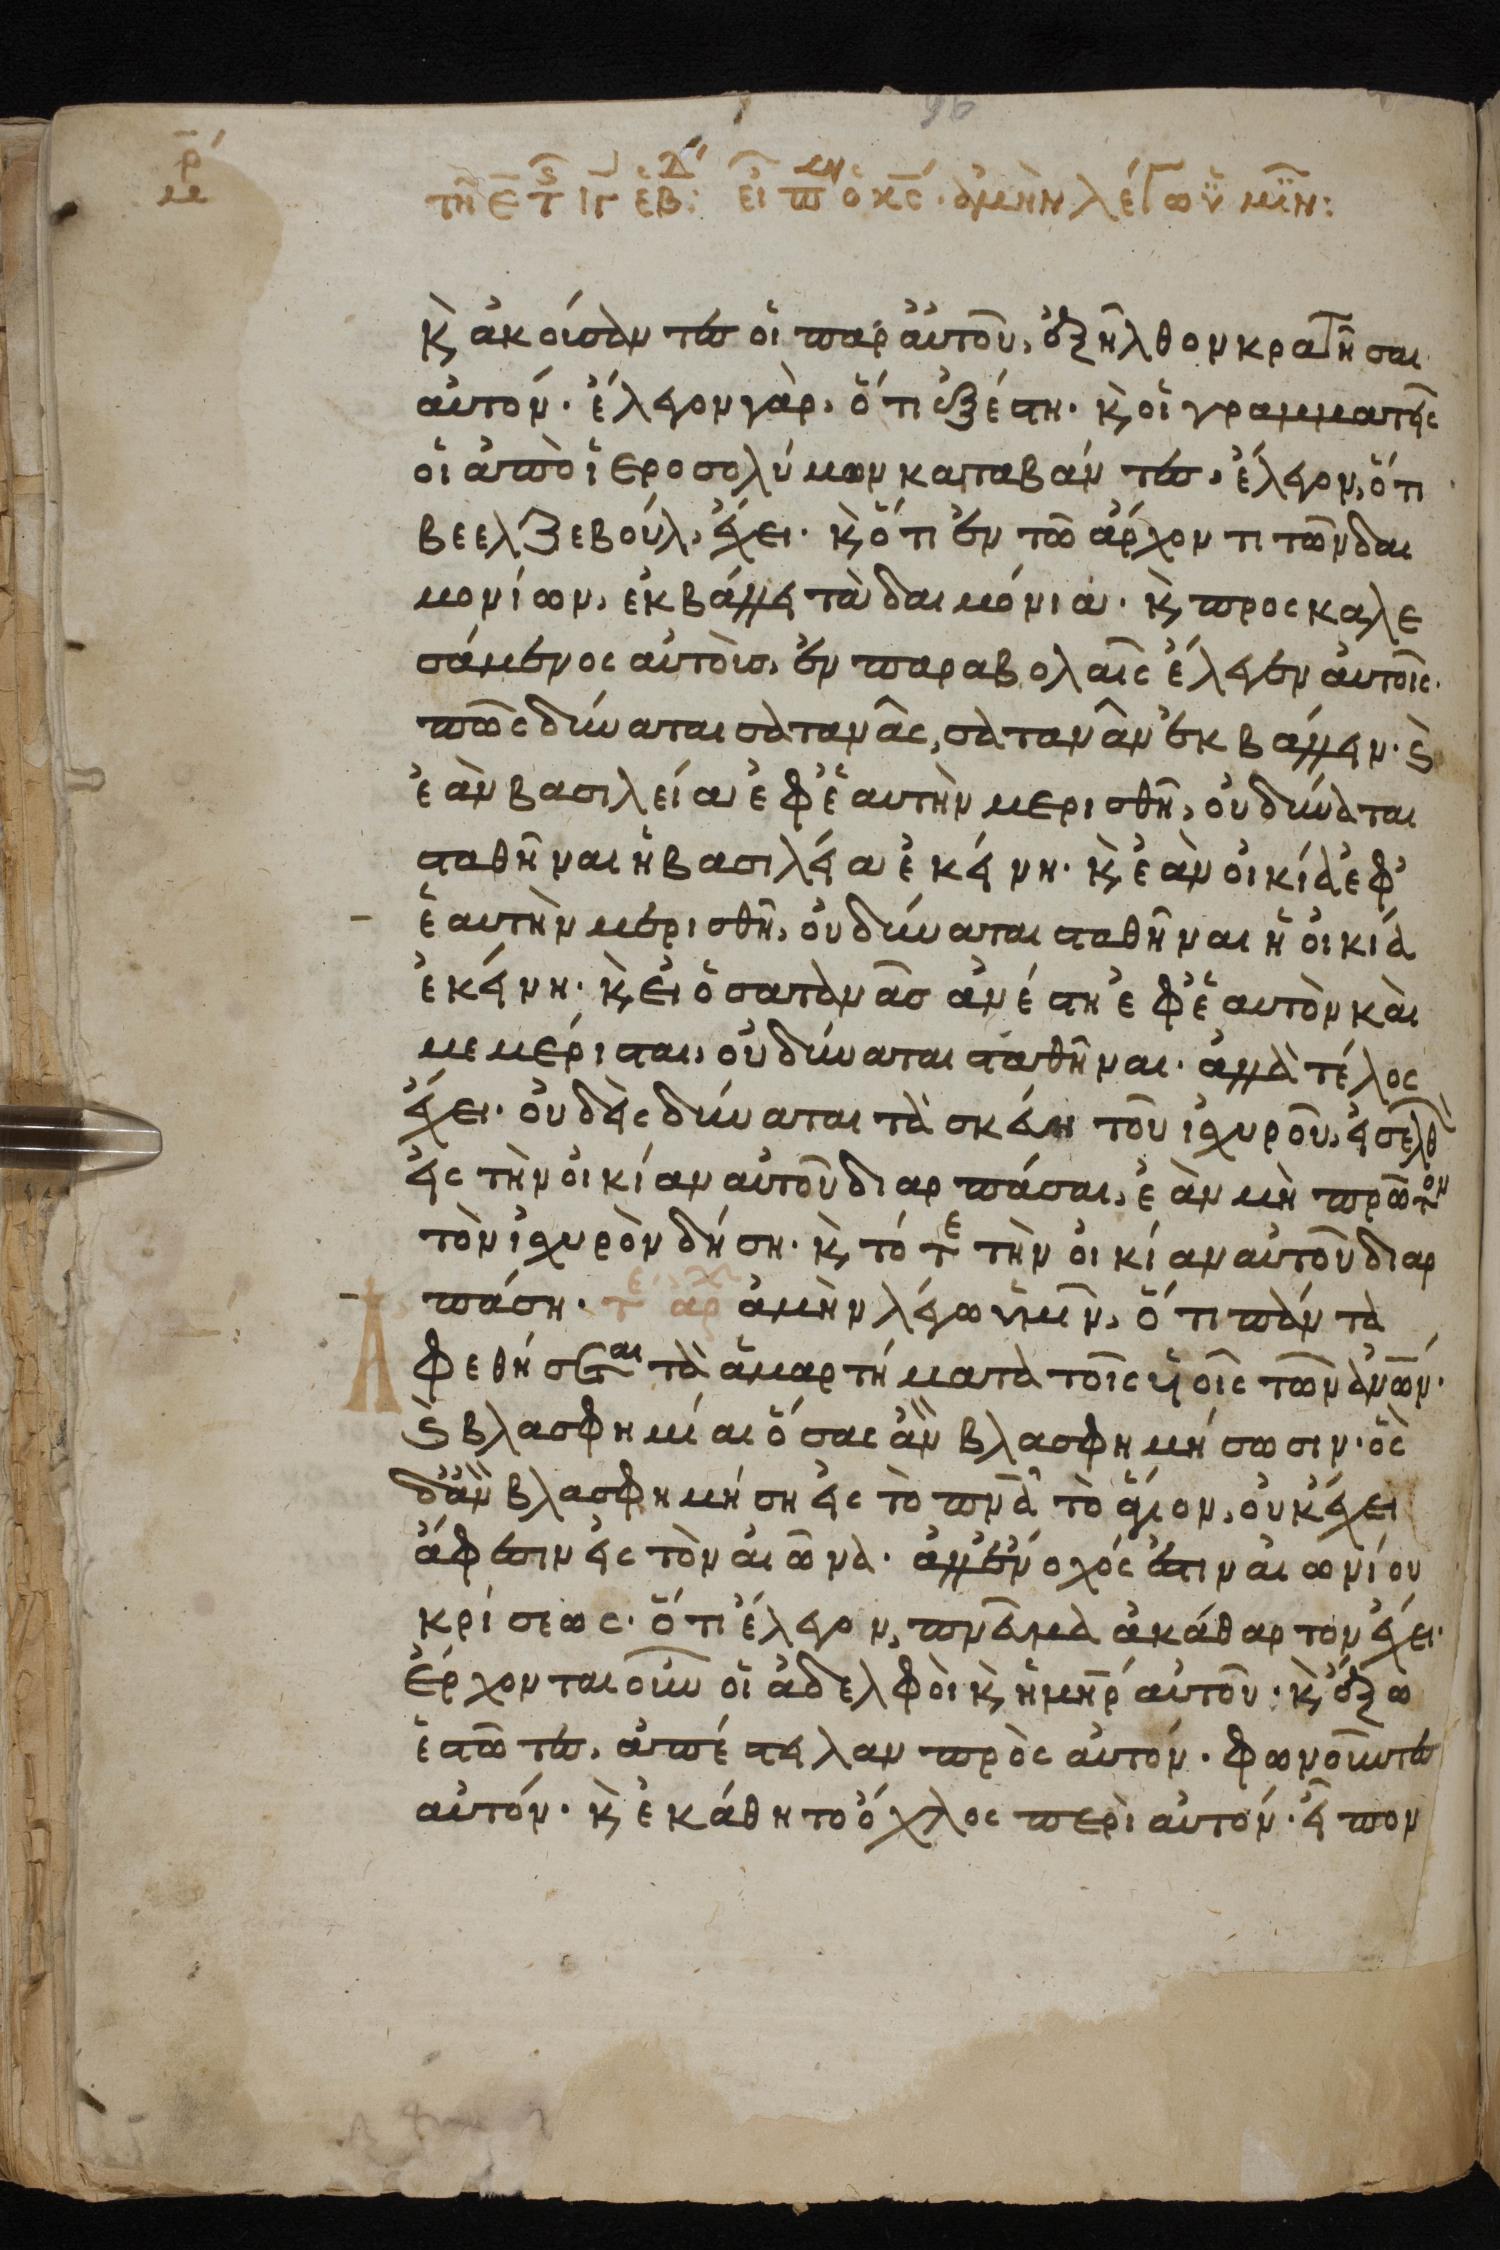 96
ρ
μ
τῆ ε τς ιγ ἑβδ: εἶπεν ὁ κς· ἀμὴν λέγω ὑμῖν:
κ ἀκούσαντες οἱ παρ αὐτοῦ, ἐξῆλθον κρατῆσαι
αὐτόν· ἔλεγον γὰρ, ὅτι ἐξέστη· κ οἱ γραμματεῖς
οἱ ἀπὸ ἱεροσολύμων καταβάντες, ἔλεγον, ὅτι
βεελζεβοὺλ, ἔχει· κ ὅτι ἐν τῶ ἄρχοντι τῶν δαι
μονίων, ἐκβάλλει τὰ δαιμόνια· κ προσκαλε
σάμενος αὐτοὺς, ἐν παραβολαῖς ἔλεγεν αὐτοῖς·
πῶς δύναται σατανᾶς, σατανᾶν ἐκβάλλειν· κ
ἐὰν βασιλεία ἐφ ἑαυτὴν μερισθῆ, οὐ δύναται
σταθῆναι ἡ βασιλεία ἐκείνη· κ ἐὰν οἰκία ἐφ
ἑαυτὴν μερισθῆ, οὐ δύναται σταθῆναι ἡ οἰκία
ἐκείνη· κ εἰ ὁ σατανᾶσ ἀνέστη ἐφ ἑαυτὸν καὶ
μεμέρισται, οὐ δύναται σταθῆναι· ἀλλὰ τέλος
ἔχει· οὐδεὶς δύναται τὰ σκεύη τοῦ ἰσχυροῦ, εἰσελθὼν
εἰς τὴν οἰκίαν αὐτοῦ διαρπάσαι, ἐὰν μὴ πρῶτον
τὸν ἰσχυρὸν δήση· κ τότε τὴν οἰκίαν αὐτοῦ διαρ
πάση· τε ἀρχ ἀμὴν λέγω ὑμῖν, ὅτι πάντα
Ἀφεθήσεται τὰ ἁμαρτήματα τοῖς υἱοῖς τῶν ἀνῶν·
κ βλασφημίαι ὅσας ἂν βλασφημήσωσιν· ὃς
δ ἂν βλασφημήση εἰς τὸ πνᾶ τὸ ἅγιον, οὐκ ἔχει
ἄφεσιν εἰς τὸν αἰῶνα· ἀλλ ἔνοχός ἐστιν αἰωνίου
κρίσεως· ὅτι ἔλεγον, πνεῦμα ἀκάθαρτον ἔχει·
ἔρχονται οὖν οἱ ἀδελφοὶ κ ἡ μηρ αὐτοῦ· κ ἔξω
ἑστῶτες, ἀπέστειλαν πρὸς αὐτόν· φωνοῦντες
αὐτόν· κ ἐκάθητο ὄχλος περὶ αὐτόν· εἶπον